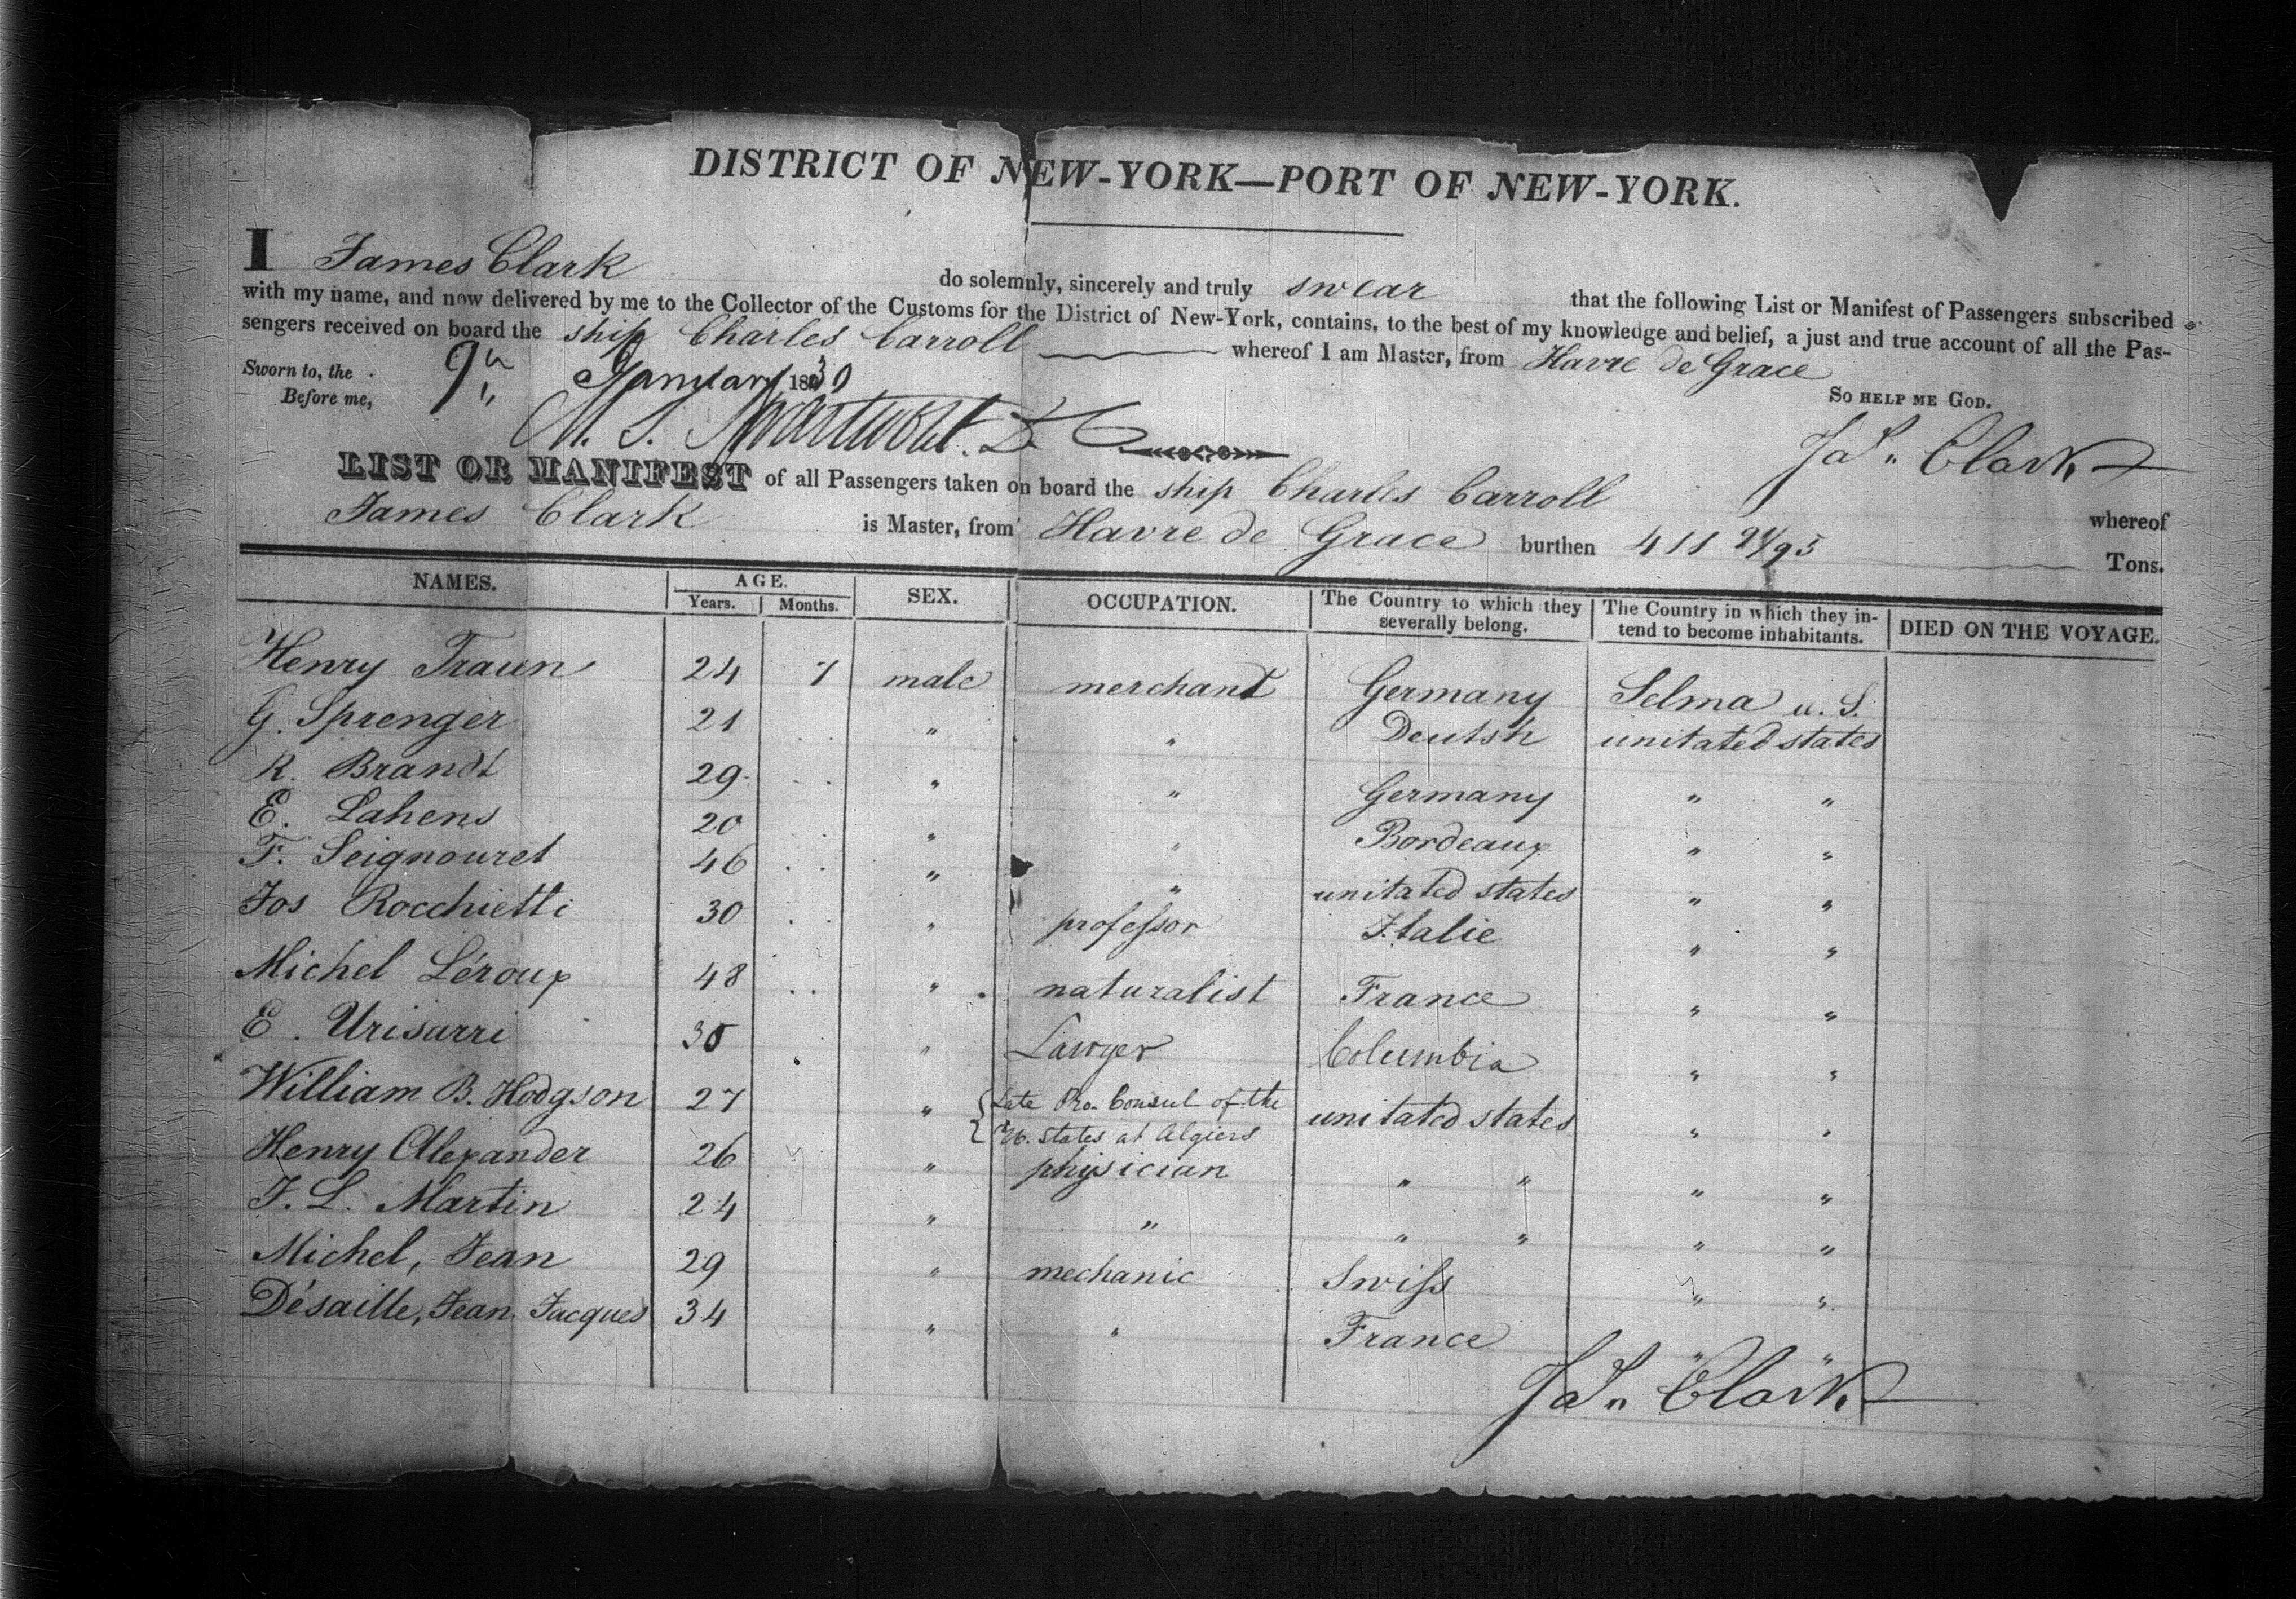 DISTRICT OF NEW-YORK—PORT OF NEW-YORK.
I James Clark do solemnly, sincerely and truly swear that the following List or Manifest of Passengers subscribed
with my name, and now delivered by me to the Collector of the Customs for the District of New-York, contains, to the best of my knowledge and belief, a just and true account of all the Pas-
sengers received on board the ship Charles Carroll whereof I am Master, from Havre de Grace
Sworn to, the 9th January 1830 So HELP ME GOD.
Before me, M. S. Swartwout. D C
Jas. Clark
LIST OR MANIFEST of all Passengers taken on board the ship Charles Carroll whereof
James Clark is Master, from Havre de Grace burthen 411 94/95 Tons.
NAMES. AGE. SEX. OCCUPATION. The Country to which they severally belong. The Country in which they in-tend to become inhabitants. DIED ON THE VOYAGE.
Years. Months.
Henry Traun 24 7 male merchant Germany Selma u. S.
G. Sprenger 21 " " Deutsh unitated states
R. Brandt 29 " " Germany " "
E. Lahens 20 " " Bordeaux " "
F. Seignouret 46 " " unitated states " "
Jos Rocchietti 30 " professor Italie " "
Michel Léroux 48 " naturalist France " "
E. Urisarri 30 " Lawyer Columbia " "
William B. Hodgson 27 " Late Pro. Consul of the unitated states " "
U. States at Algiers
Henry Alexander 26 " physician " " " "
J. L. Martin 24 " " " " " "
Michel, Jean 29 " mechanic Swiss " "
Désaille, Jean Jacques 34 " " France " "
Jas. Clark